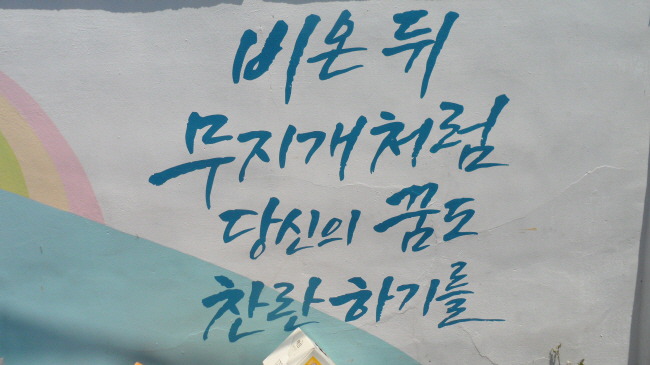 비온 뒤
무지개처럼
당신의 꿈도
찬란하기를